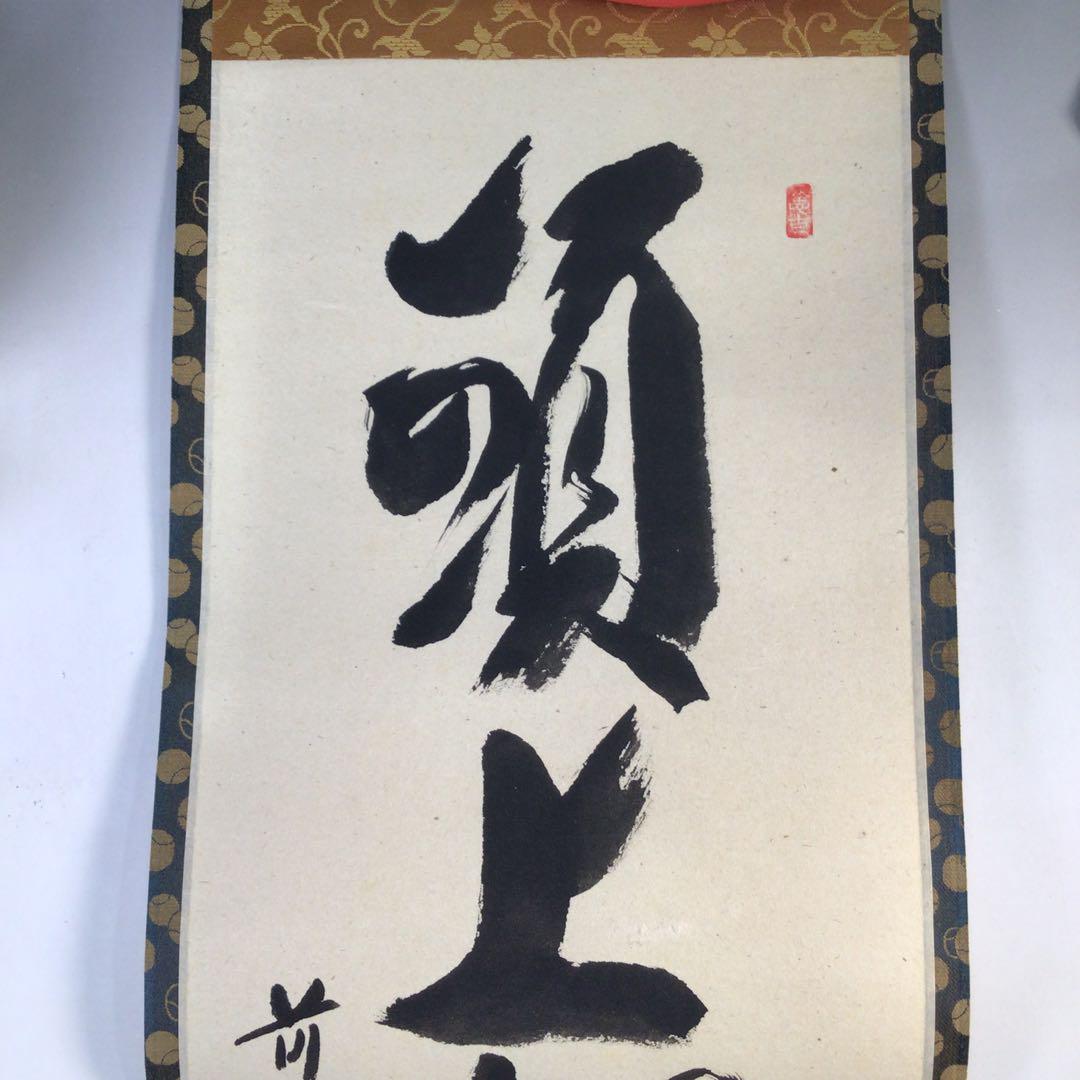 頭上
前